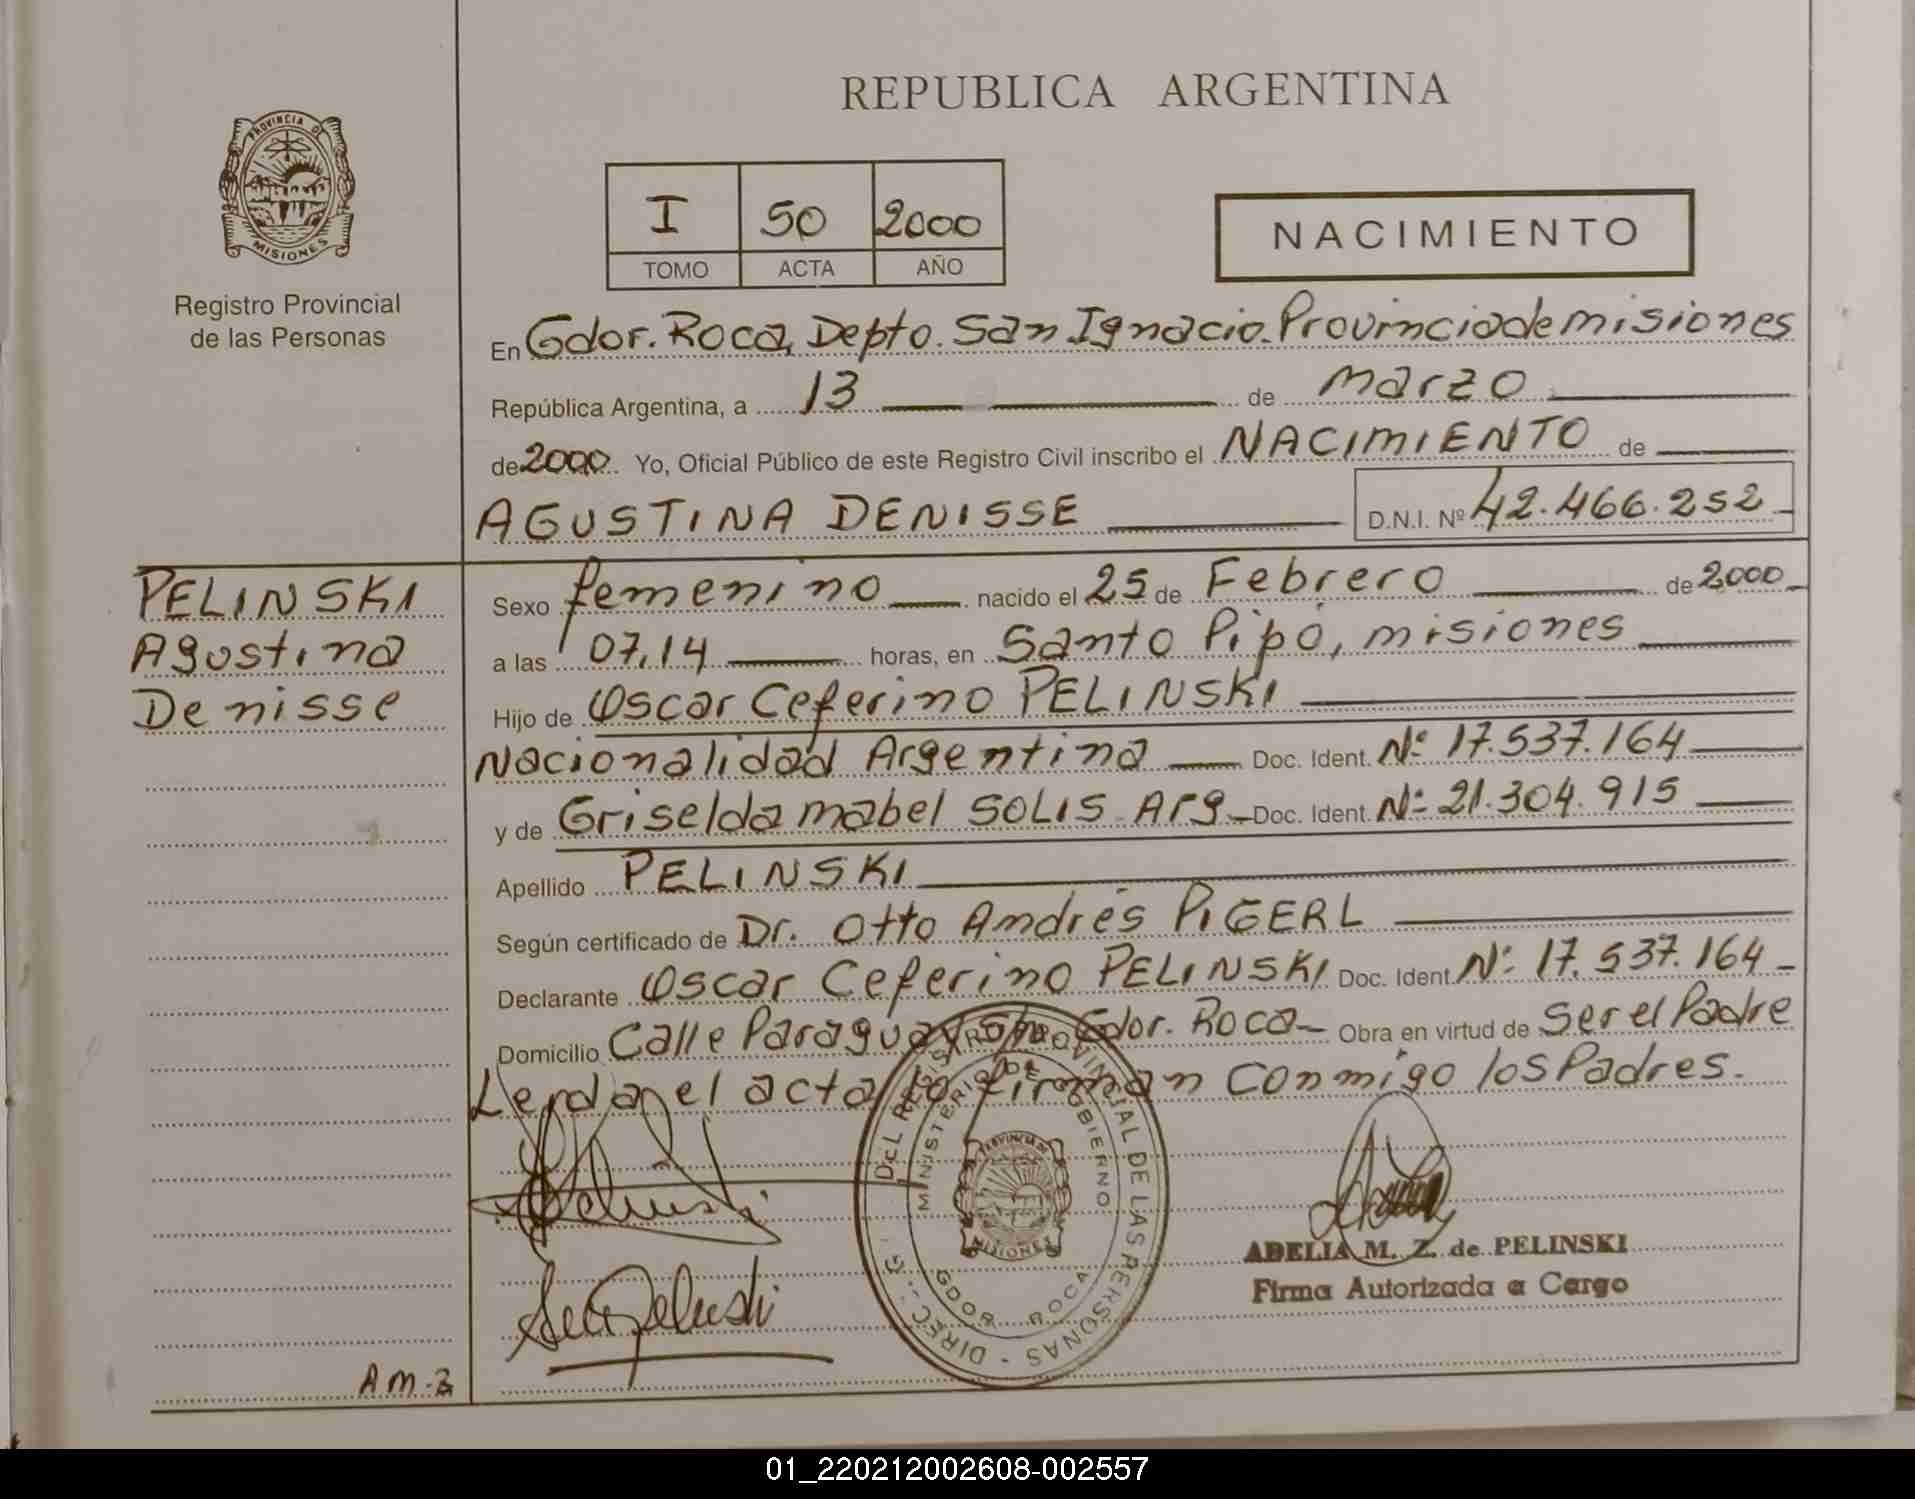 REPUBLICA ARGENTINA
PROVINCIA DE
MISIONES
Registro Provincial
de las Personas
I 50 2000
TOMO ACTA AÑO
NACIMIENTO
En Gdor. Roca, Depto. San Ignacio. Provincia de misiones
República Argentina, a 13 de marzo
de 2000 Yo, Oficial Público de este Registro Civil inscribo el NACIMIENTO de
AGUSTINA DENISSE D.N.I. Nº 42.466.252
PELINSKI
Agustina
Denisse
Sexo femenino nacido el 25 de Febrero de 2000
a las 07,14 horas, en Santo Pipó, misiones
Hijo de Oscar Ceferino PELINSKI
Nacionalidad Argentina Doc. Ident. Nº 17.537.164
y de Griselda mabel SOLIS Arg Doc. Ident. Nº 21.304.915
Apellido PELINSKI
Según certificado de Dr. Otto Andrés PIGERL
Declarante Oscar Ceferino PELINSKI Doc. Ident. Nº 17.537.164
Domicilio Calle Paraguay S/n Gdor. Roca Obra en virtud de ser el Padre
Leida el acta la firman conmigo los Padres.
DIREC. G. DEL REGISTRO PROVINCIAL DE LAS PERSONAS
MINISTERIO DE GOBIERNO
PROVINCIA DE
MISIONES
GDOR ROCA
ADELIA M. Z. de PELINSKI
Firma Autorizada a Cargo
A M-Z
01_220212002608-002557